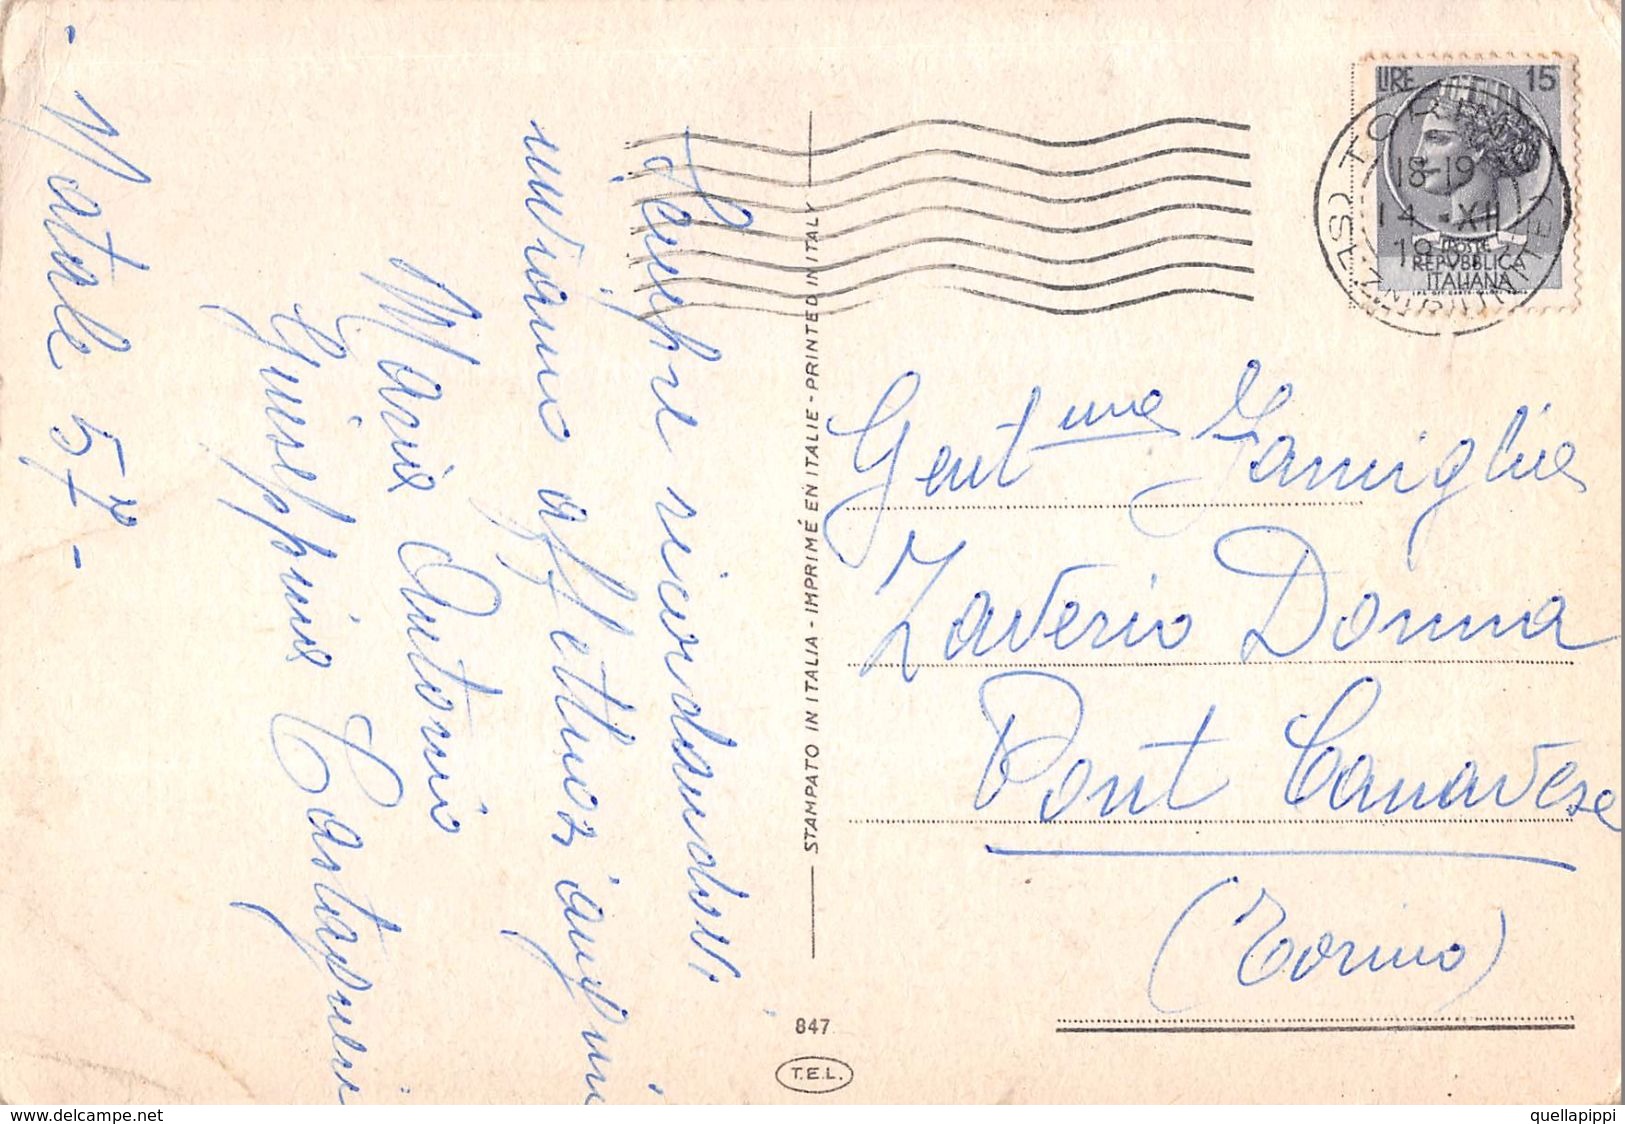 Sempre ricordandovi
inviamo affettuosi auguri
Maria Antonio
Giuseppina Cartagneri
Natale 57 -
STAMPATO IN ITALIA - IMPRIMÉ EN ITALIE - PRINTED IN ITALY
847
T.E.L.
LIRE 15
POSTE
REPVBBLICA
ITALIANA
18-19
14 XII
Gent ma Famiglia
Zaverio Donna
Pont Canavese
(Torino)
www.delcampe.net
quellapippi